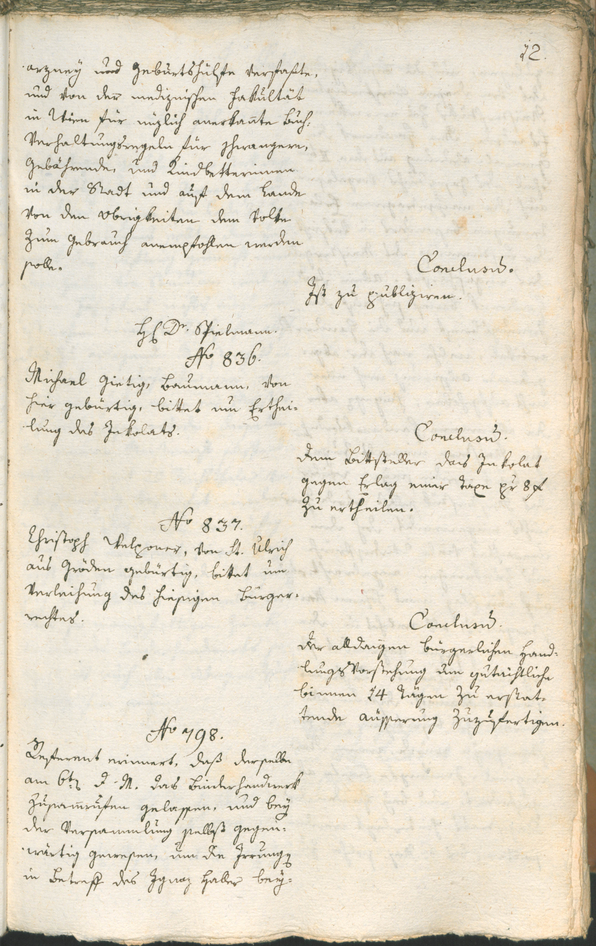 12.
arzney und Geburtshülfe verfaßte,
und von der medizinischen Fakultät
in Wien für nüzlich anerkante Buch:
Verhaltungsregeln für schwangere,
Gebährende, und Kindbetterinnen
in der Stadt und auf dem Lande
von den Obrigkeiten dem Volke
zum Gebrauch anempfohlen werden
solle.
Conclusum.
Ist zu publiziren.
H. Dr. Spielmann.
No 836.
Michael Gietig, Baumann, von
hier gebürtig, bittet um Erthei-
lung des Inkolats.
Conclusum.
dem Bittsteller das Inkolat
gegen Erlag einer Taxe pr 8 f
zu ertheilen.
No 837.
Christoph Welponer, von St. Ulrich
aus Groden gebürtig, bittet um
Verleihung des hiesigen Bürger-
rechtes.
Conclusum.
der alldaigen bürgerlichen Hand-
lungsVorstehung um gutächtliche
binnen 14 Tägen zu erstat-
tende äusserung zuzufertigen.
No 798.
Referent erinnert, daß derselbe
am 6t d. M. das Binderhandwerk
zusamrufen gelassen, und bey
der Versammlung selbst gegen-
wärtig gewesen, um die Irrung
in Betreff des Ignaz Haller bey-